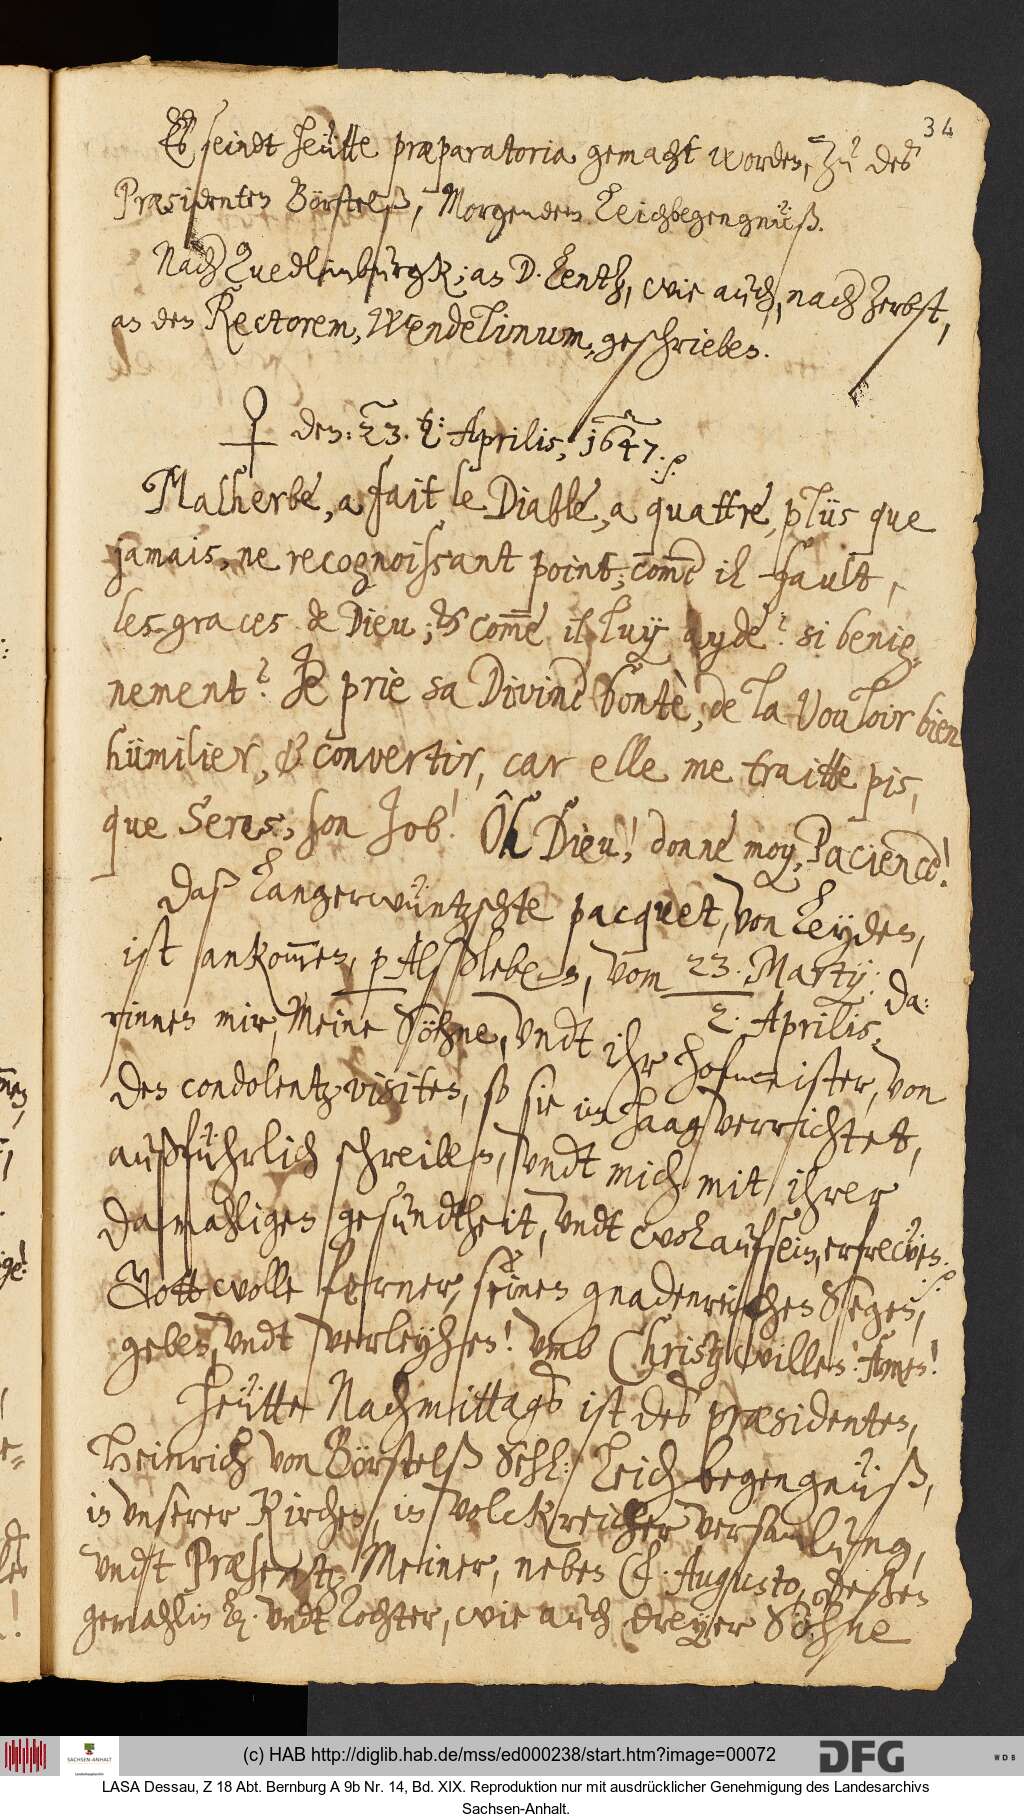 34
Es seindt heütte præparatoria gemacht worden, zu des
Præsidenten Börstelß, Morgenden Leichbegengnüß.
Nach Quedlinburgk, an D. Lenth, wie auch, nach Zerbst,
an den Rectorem, Wendelinum, geschrieben.
♀ den: 23. Aprilis, 1647.
Malherbe, a fait le Diable, a quattre, plüs que
jamais, ne recognoissant point, come il fault,
les graces de Dieu; & come il luy ayde? si benig-
nement? Je prie sa Divine bontè, de la vouloir bien
hümilier, & convertir, car elle me traitte pis,
que Seres, son Job! Ôh Dieu! donne moy, Pacience!
Daß Langerwüntzschte pacquet, von Leyden,
ist ankommen, p Alßleben, vom 23. Martij: da-
2. Aprilis,
rinnen mir, Meine Söhne, vndt ihr hofmeister, von
den condolentz visiten, so sie im Haag verrichtet,
außführlich schreiben, vndt mich mit ihrer
damahligen gesundtheit, vndt wolaufsein, erfrewen.
Gott wolle ferner, seinen gnadenreichen Segen,
geben, vndt verleyhen! vmb Christj willen! Amen!
Heütte Nachmittags ist des præsidenten,
Heinrich von Börstelß Sehl: Leichbegengnüß,
in vnserer Kirchen, in volckreicher versamlung,
vndt Præsentz Meiner, neben F. Augusto, deßen
gemahlin vndt Tochter, wie auch dreyer Söhne
(c) HAB http://diglib.hab.de/mss/ed000238/start.htm?image=00072
SACHSEN-ANHALT
DFG
WDB
LASA Dessau, Z 18 Abt. Bernburg A 9b Nr. 14, Bd. XIX. Reproduktion nur mit ausdrücklicher Genehmigung des Landesarchivs
Sachsen-Anhalt.